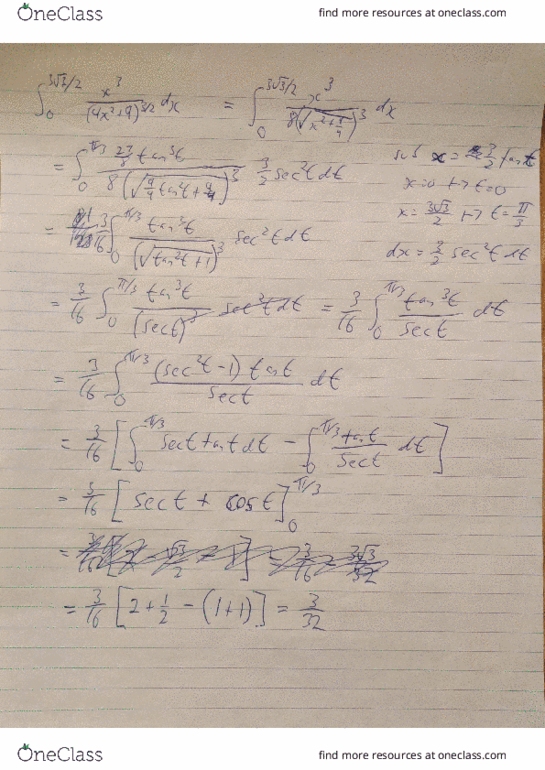 OneClass find more resources at oneclass.com
∫₀^(3√3/2) x³/(4x²+9)^(3/2) dx = ∫₀^(3√3/2) x³/(8(√(x²+9/4))³) dx
sub x = 3/2 tan t
= ∫₀^(π/3) (27/8 tan³t)/(8(√(9/4 tan²t + 9/4))³) 3/2 sec²t dt
x=0 ↦ t=0
x = 3√3/2 ↦ t = π/3
= 3/16 ∫₀^(π/3) tan³t/(√(tan²t+1))³ sec²t dt
dx = 3/2 sec²t dt
= 3/16 ∫₀^(π/3) tan³t/(sec t)³ sec²t dt = 3/16 ∫₀^(π/3) tan³t/sec t dt
= 3/16 ∫₀^(π/3) (sec²t-1) tan t/sec t dt
= 3/16 [∫₀^(π/3) sec t tan t dt - ∫₀^(π/3) tan t/sec t dt]
= 3/16 [sec t + cos t]₀^(π/3)
= 3/16 [2 + 1/2 - (1+1)] = 3/32
OneClass find more resources at oneclass.com